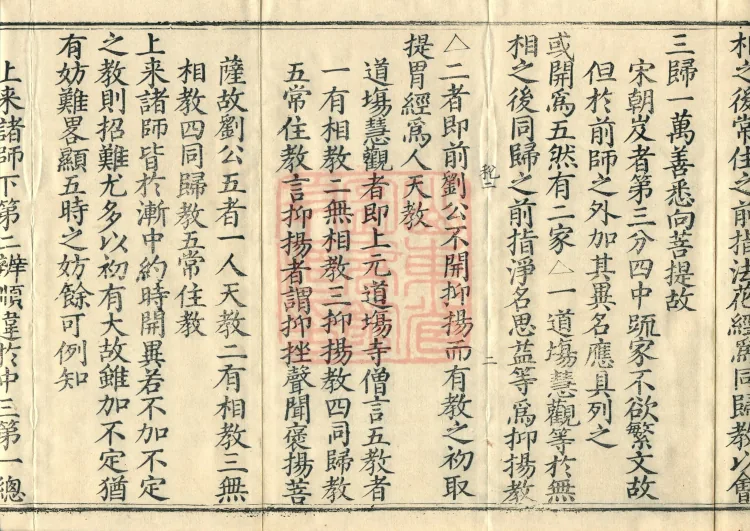 相之後常住之前指法花經爲同歸教以會
三歸一萬善悉向菩提故
宋朝岌者第三分四中䟽家不欲繁文故
但於前師之外加其異名應具列之
或開爲五然有二家△一道塲慧觀等於無
相之後同歸之前指淨名思益等爲抑揚教
△二者即前劉公不開抑揚而有教之初取
提胃經爲人天教
道塲慧觀者即上元道塲寺僧言五教者
一有相教二無相教三抑揚教四同歸教
五常住教言抑揚者謂抑挫聲聞褒揚菩
薩故劉公五者一人天教二有相教三無
相教四同歸教五常住教
上来諸師皆於漸中約時開異若不加不定
之教則招難尤多以初有大故雖加不定猶
有妨難畧顯五時之妨餘可例知
上来諸師下第二辨順違於中三第一總
二